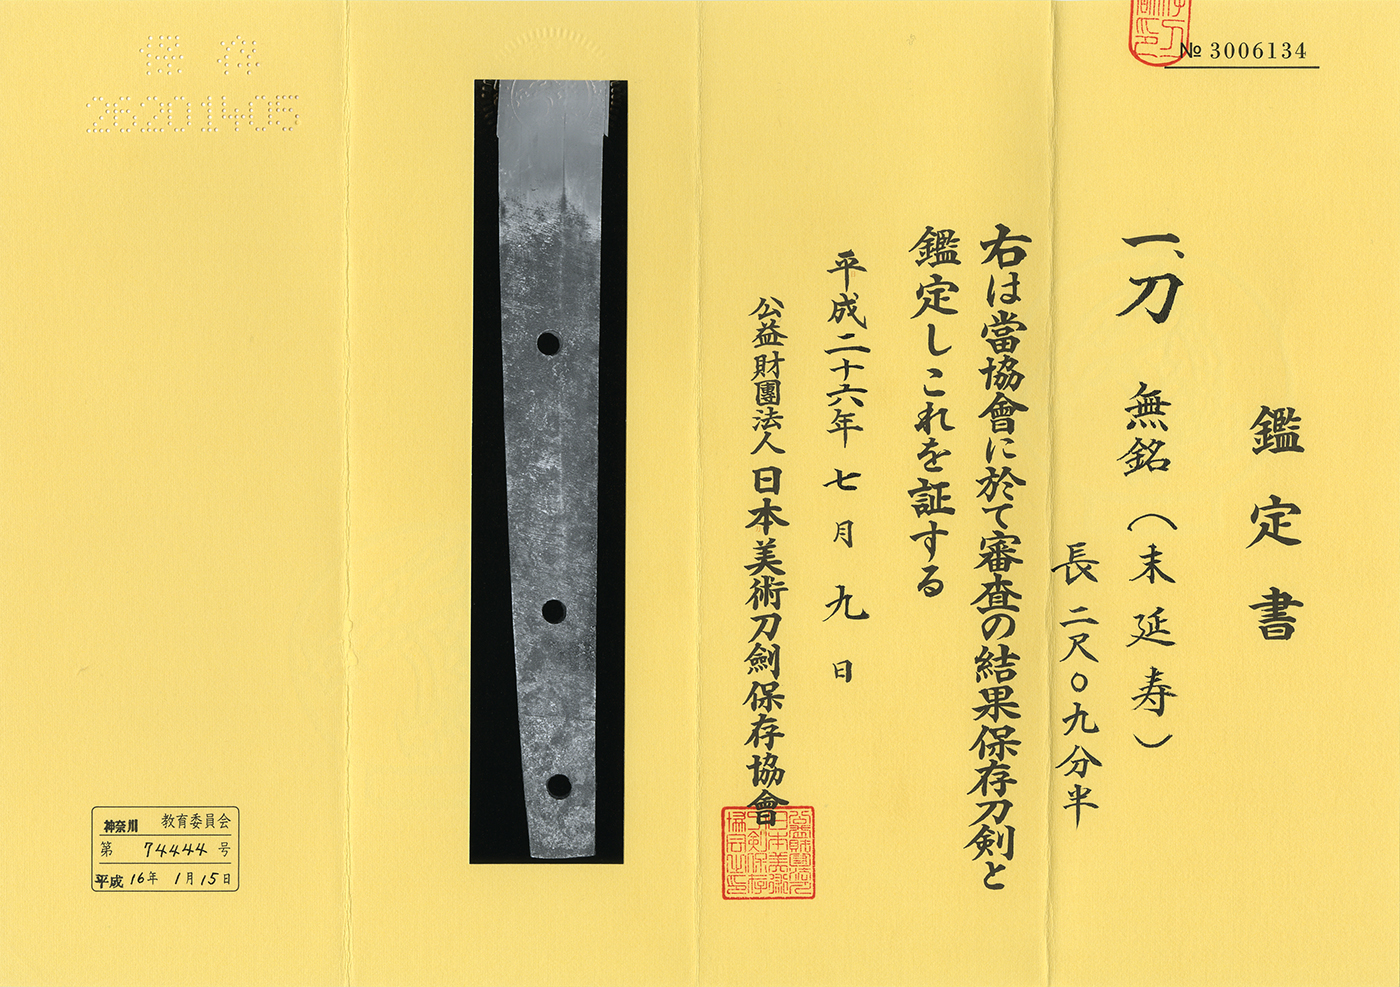 № 3006134
鑑定書
一、刀 無銘(末延寿)
長二尺〇九分半
右は當協會に於て審査の結果保存刀剣と
鑑定しこれを証する
平成二十六年七月九日
公益財團法人日本美術刀劍保存協會
保存
26201405
神奈川 教育委員会
第 74444 号
平成 16年 1月 15日